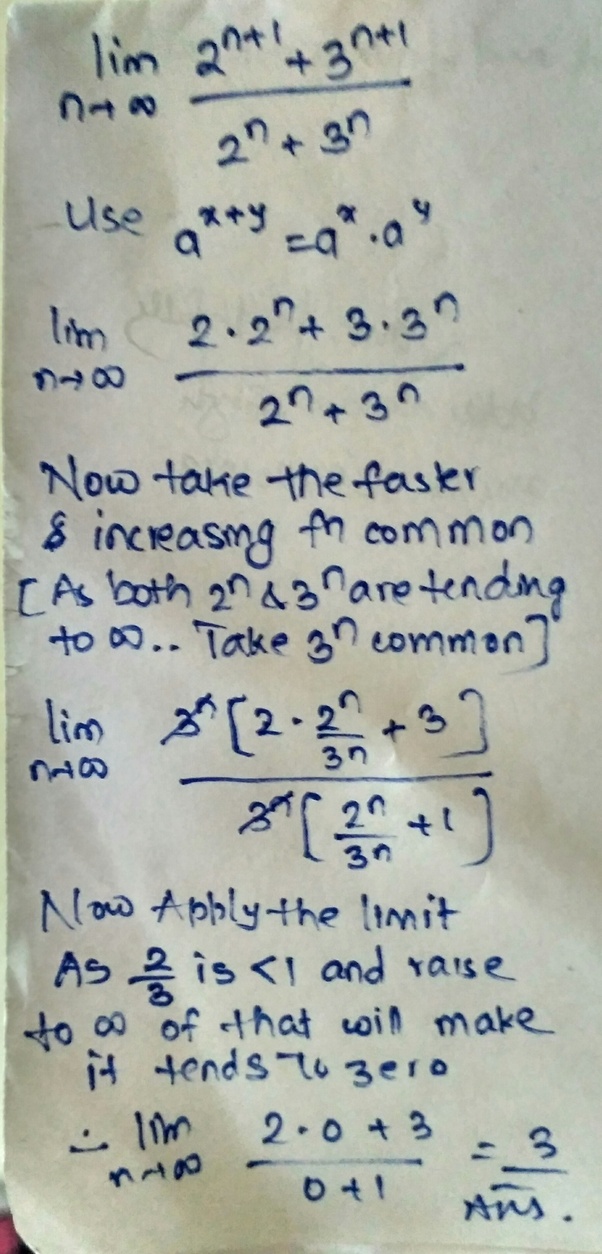 lim 2^{n+1} + 3^{n+1}
n→∞ 2^n + 3^n
Use a^{x+y} = a^x . a^y
lim 2 . 2^n + 3 . 3^n
n→∞ 2^n + 3^n
Now take the faster
& increasing fn common
[As both 2^n & 3^n are tending
to ∞.. Take 3^n common]
lim 3^n [2 . 2^n/3^n + 3]
n→∞ 3^n [2^n/3^n + 1]
Now Apply the limit
As 2/3 is <1 and raise
to ∞ of that will make
it tends to zero
∴ lim 2 . 0 + 3 = 3
n→∞ 0 + 1 Ans.